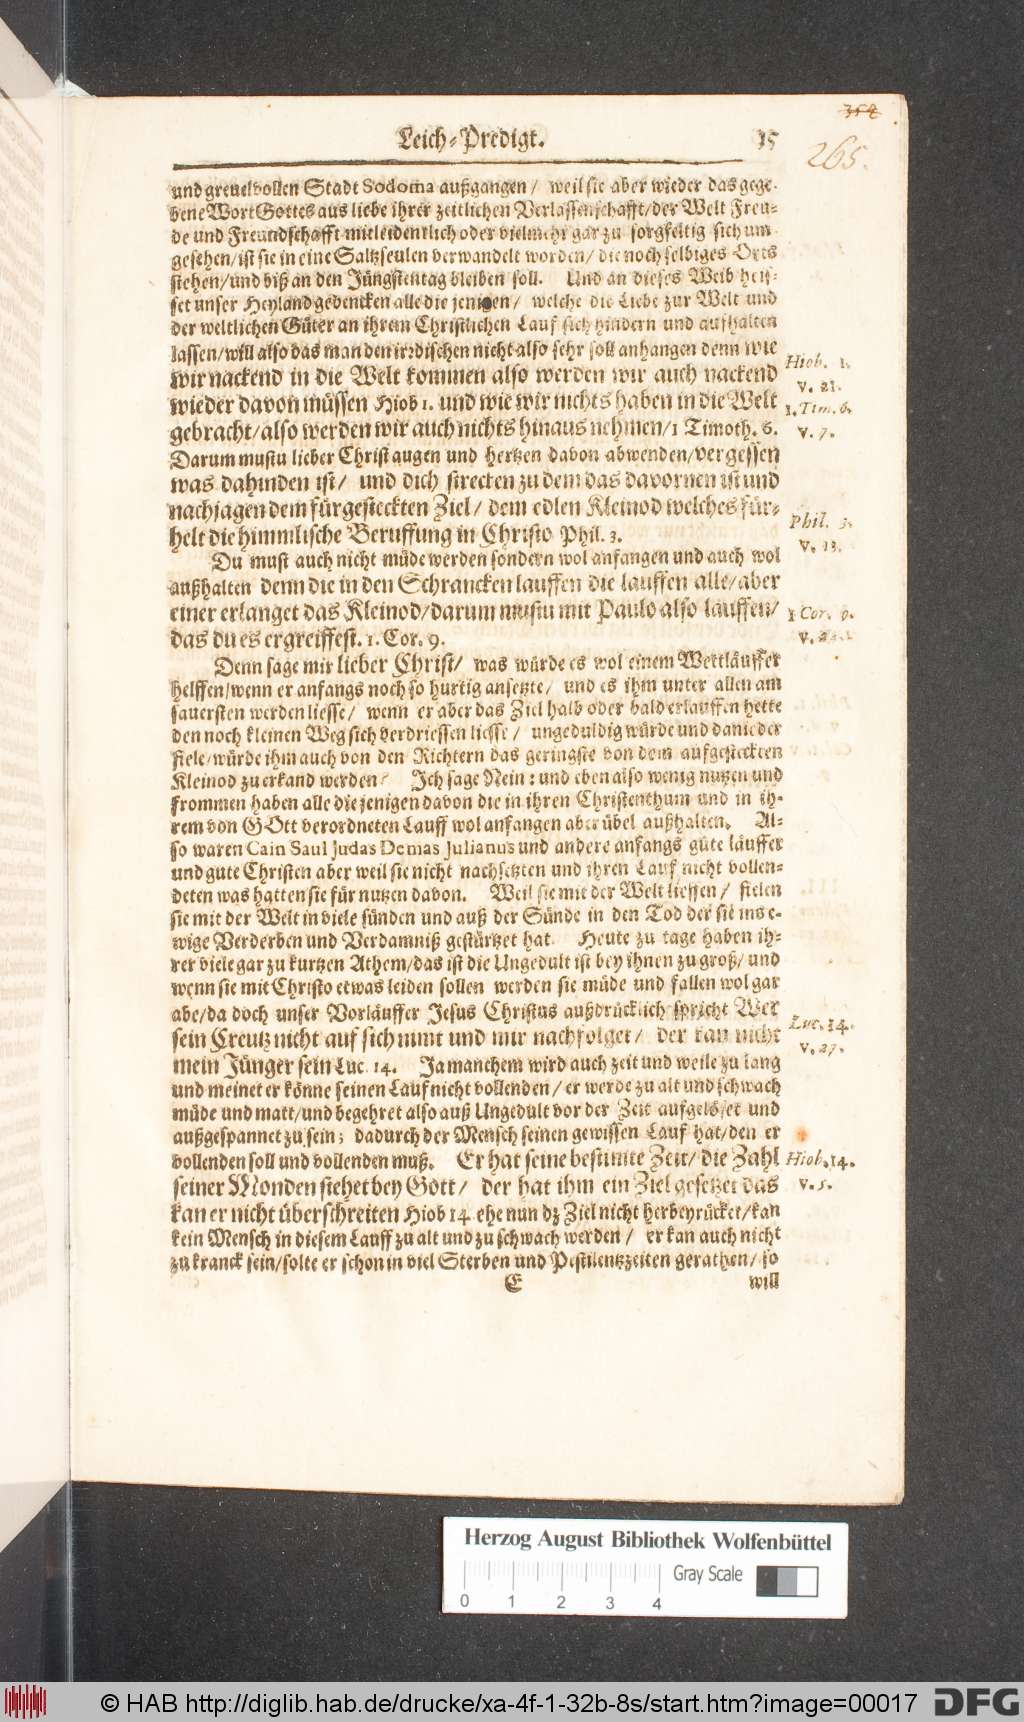 Leich-Predigt. 15
354
265.
und greuelvollen Stadt Sodoma außgangen / weil sie aber wieder das gege-
bene Wort Gottes aus liebe ihrer zeitlichen Verlassenschafft/der Welt Freu-
de und Freundschafft mitleidentlich oder vielmehr gar zu sorgfeltig sich um
gesehen/ist sie in eine Saltzseulen verwandelt worden/ die noch selbiges Orts
stehen/und biß an den Jüngstentag bleiben soll. Und an dieses Weib heis-
set unser Heyland gedencken alle die jenigen/ welche die Liebe zur Welt und
der weltlichen Güter an ihrem Christlichen Lauf sich hindern und aufhalten
lassen/will also das man den irrdischen nicht also sehr soll anhangen denn wie
wir nackend in die Welt kommen also werden wir auch nackend
wieder davon müssen Hiob 1. und wie wir nichts haben in die Welt
gebracht/also werden wir auch nichts hinaus nehmen/1 Timoth. 6.
Darum mustu lieber Christ augen und hertzen davon abwenden/vergessen
was dahinden ist/ und dich strecken zu dem das davornen ist und
nachjagen dem fürgesteckten Ziel/ dem edlen Kleinod welches für-
helt die himmlische Beruffung in Christo Phil. 3.
Hiob. 1.
v. 21.
1. Tim. 6.
v. 7.
Phil. 3.
v. 13.
Du must auch nicht müde werden sondern wol anfangen und auch wol
außhalten denn die in den Schrancken lauffen die lauffen alle/aber
einer erlanget das Kleinod/darum mustu mit Paulo also lauffen/
das du es ergreiffest. 1. Cor. 9.
1 Cor. 9.
v. 24.
Denn sage mir lieber Christ/ was würde es wol einem Wettläuffer
helffen/wenn er anfangs noch so hurtig ansetzte/ und es ihm unter allen am
sauersten werden liesse/ wenn er aber das Ziel halb oder bald erlauffen hette
den noch kleinen Weg sich verdriessen liesse/ ungeduldig würde und danieder
fiele/würde ihm auch von den Richtern das geringste von dem aufgesteckten
Kleinod zu erkand werden? Ich sage Nein: und eben also wenig nutzen und
frommen haben alle die jenigen davon die in ihren Christenthum und in ih-
rem von GOtt verordneten Lauff wol anfangen aber übel außhalten. Al-
so waren Cain Saul Judas Demas Julianus und andere anfangs gute läuffer
und gute Christen aber weil sie nicht nachsetzten und ihren Lauf nicht vollen-
deten was hatten sie für nutzen davon. Weil sie mit der Welt lieffen/ fielen
sie mit der Welt in viele sünden und auß der Sünde in den Tod der sie ins e-
wige Verderben und Verdamniß gestürtzet hat. Heute zu tage haben ih-
rer viele gar zu kurtzen Athem/das ist die Ungedult ist bey ihnen zu groß/ und
wenn sie mit Christo etwas leiden sollen werden sie müde und fallen wol gar
abe/da doch unser Vorläuffer Jesus Christus außdrücklich spricht Wer
sein Creutz nicht auf sich nimt und mir nachfolget/ der kan nicht
mein Jünger sein Luc. 14. Ja manchem wird auch zeit und weile zu lang
und meinet er könne seinen Lauf nicht vollenden/er werde zu alt und schwach
müde und matt/und begehret also auß Ungedult vor der Zeit aufgelöset und
außgespannet zu sein; dadurch der Mensch seinen gewissen Lauf hat/den er
vollenden soll und vollenden muß. Er hat seine bestimte Zeit/ die Zahl
seiner Monden stehet bey Gott/ der hat ihm ein Ziel gesetzet das
kan er nicht überschreiten Hiob 14 ehe nun dz Ziel nicht herbeyrücket/kan
kein Mensch in diesem Lauff zu alt und zu schwach werden/ er kan auch nicht
zu kranck sein/solte er schon in viel Sterben und Pestilentzzeiten gerathen/ so
Luc. 14.
v. 27.
Hiob. 14.
v. 5.
E will
Herzog August Bibliothek Wolfenbüttel
Gray Scale
0 1 2 3 4
© HAB http://diglib.hab.de/drucke/xa-4f-1-32b-8s/start.htm?image=00017
DFG